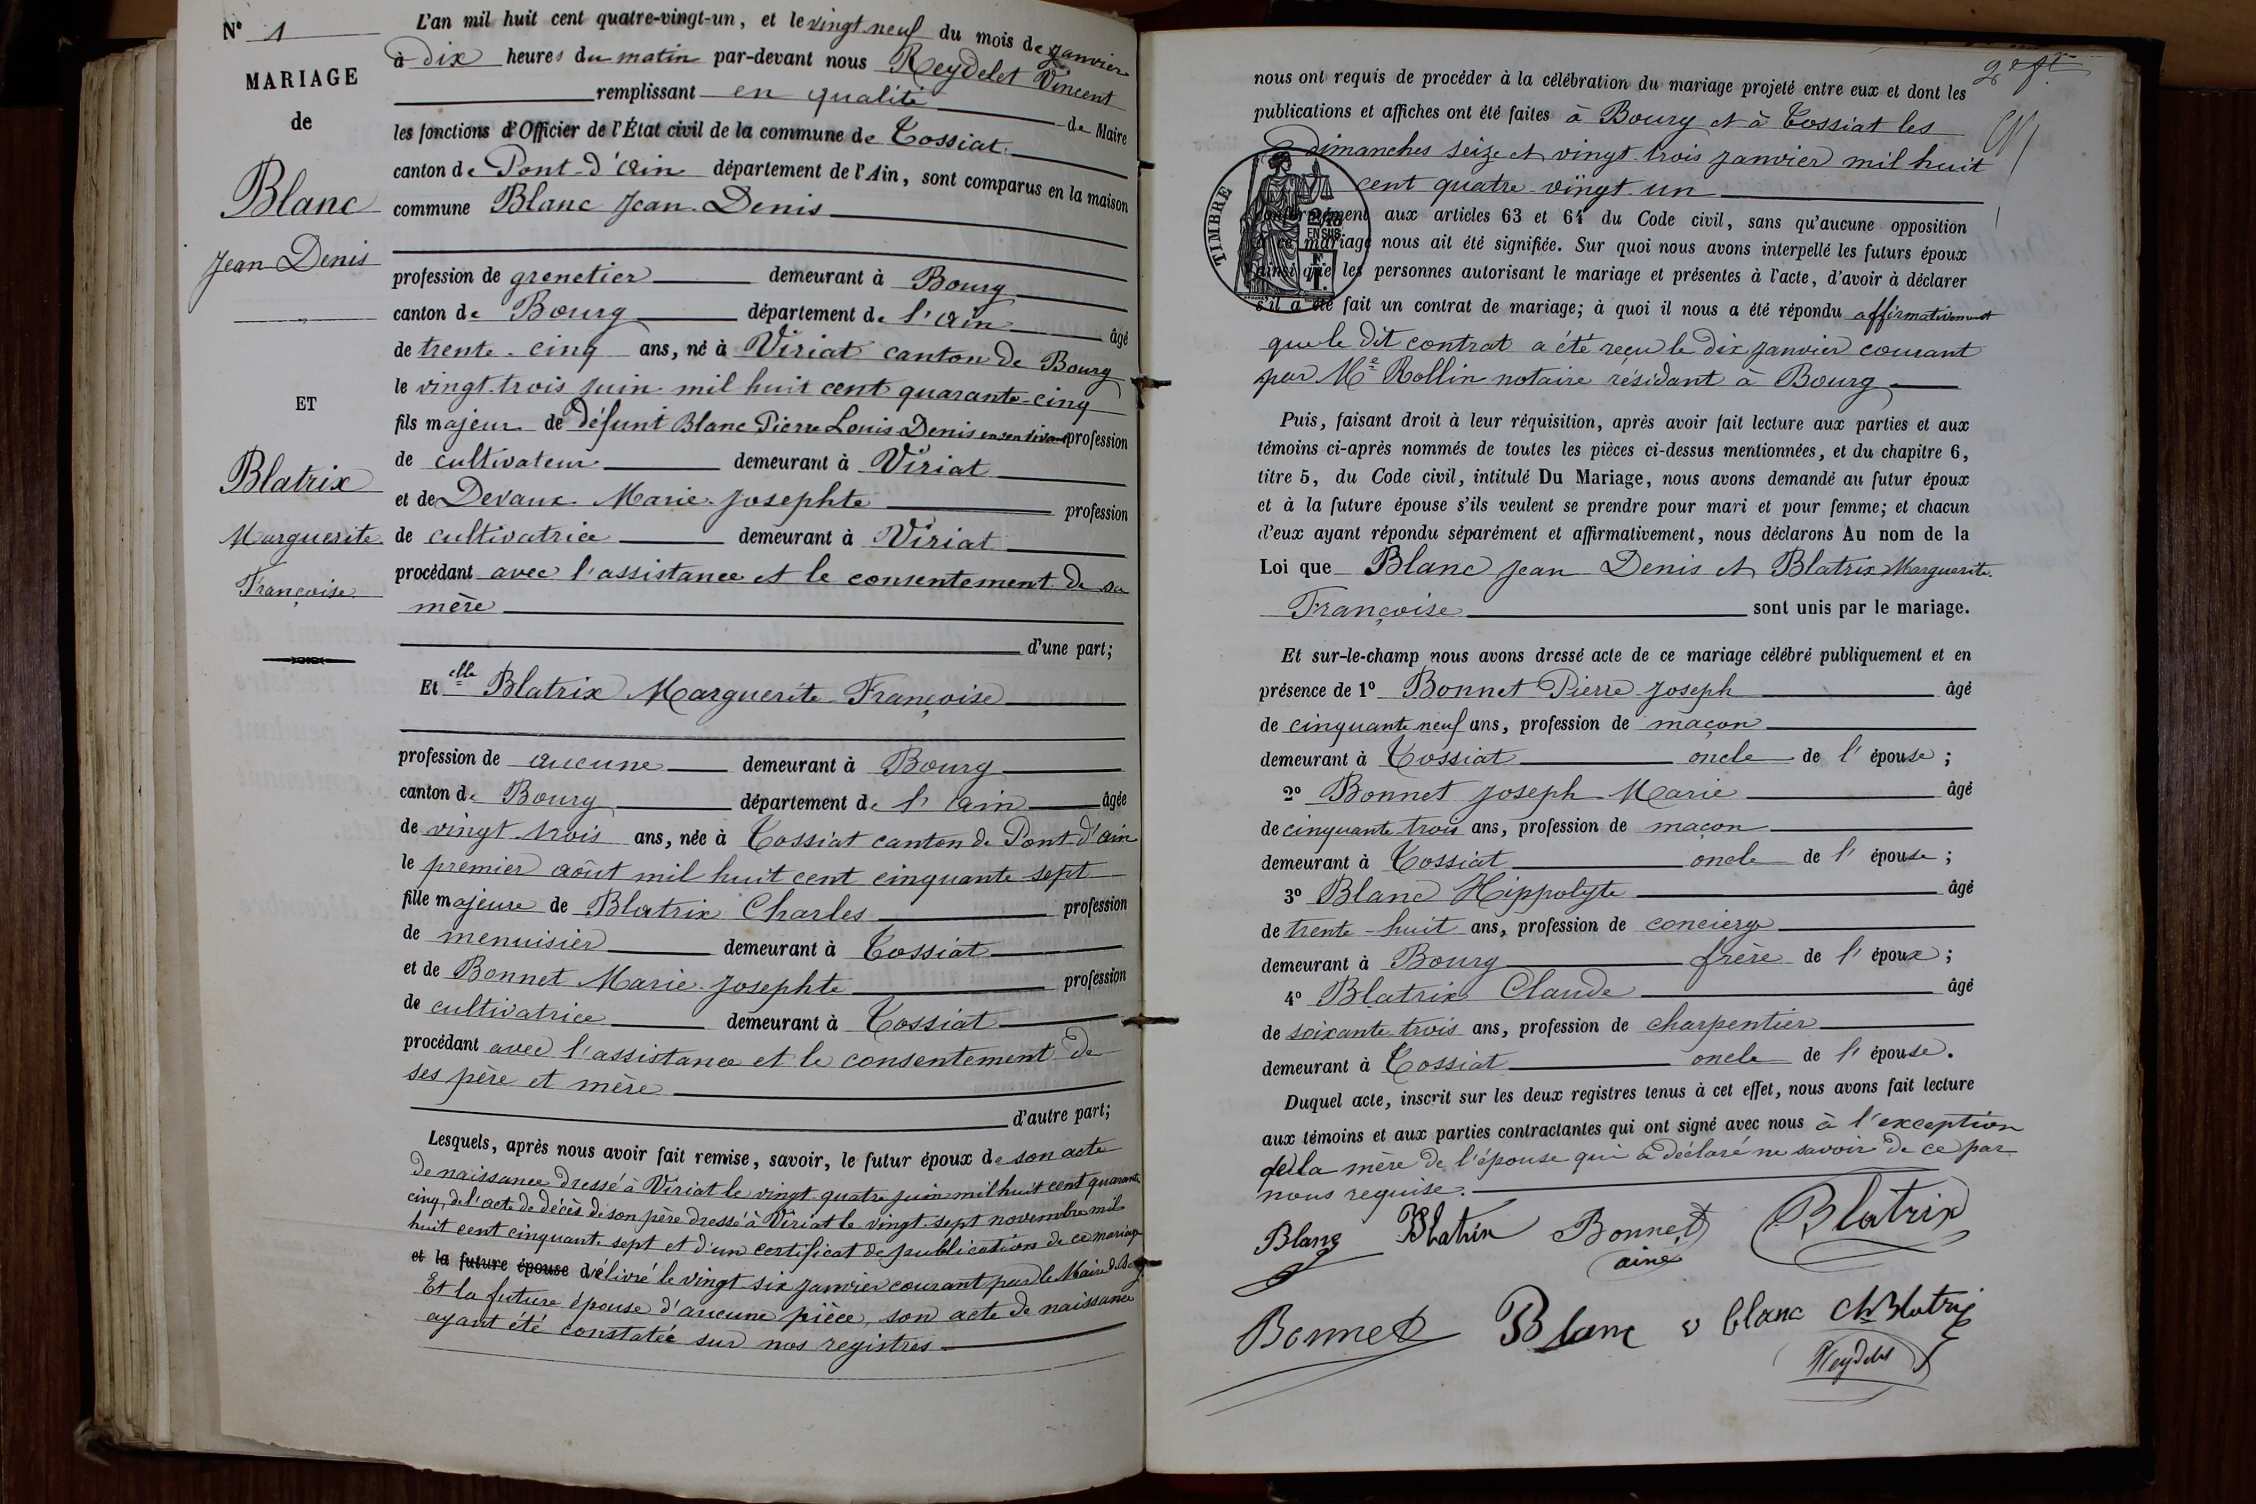 N° 1
MARIAGE
de
Blanc
Jean Denis
ET
Blatrix
Marguerite
Françoise
L'an mil huit cent quatre-vingt-un, et le vingt neuf du mois de janvier
à dix heures du matin par-devant nous Reydelet Vincent
remplissant en qualité de Maire
les fonctions d'Officier de l'État civil de la commune de Tossiat
canton de Pont-d'Ain département de l'Ain, sont comparus en la maison
commune Blanc Jean Denis
profession de grenetier demeurant à Bourg
canton de Bourg département de l'Ain âgé
de trente-cinq ans, né à Viriat canton de Bourg
le vingt-trois juin mil huit cent quarante-cinq
fils majeur de défunt Blanc Pierre Louis Denis en son vivant profession
de cultivateur demeurant à Viriat
et de Devaux Marie Josephte profession
de cultivatrice demeurant à Viriat
procédant avec l'assistance et le consentement de sa
mère
d'une part;
Et elle Blatrix Marguerite Françoise
profession de aucune demeurant à Bourg
canton de Bourg département de l'Ain âgée
de vingt-trois ans, née à Tossiat canton de Pont-d'Ain
le premier août mil huit cent cinquante-sept
fille majeure de Blatrix Charles profession
de menuisier demeurant à Tossiat
et de Bonnet Marie Josephte profession
de cultivatrice demeurant à Tossiat
procédant avec l'assistance et le consentement de
ses père et mère
d'autre part;
Lesquels, après nous avoir fait remise, savoir, le futur époux de son acte
de naissance dressé à Viriat le vingt-quatre juin mil huit cent quarante
cinq, de l'acte de décès de son père dressé à Viriat le vingt-sept novembre mil
huit cent cinquante-sept et d'un certificat de publication de ce mariage
et la future épouse délivré le vingt-six janvier courant par le Maire de Bourg
Et la future épouse d'aucune pièce, son acte de naissance
ayant été constatée sur nos registres
nous ont requis de procéder à la célébration du mariage projeté entre eux et dont les
publications et affiches ont été faites à Bourg et à Tossiat les
dimanches seize et vingt-trois janvier mil huit
cent quatre-vingt-un
TIMBRE
2/10
EN SUS
conformément aux articles 63 et 64 du Code civil, sans qu'aucune opposition
à ce mariage nous ait été signifiée. Sur quoi nous avons interpellé les futurs époux
ainsi que les personnes autorisant le mariage et présentes à l'acte, d'avoir à déclarer
s'il a été fait un contrat de mariage; à quoi il nous a été répondu affirmativement
que le dit contrat a été reçu le dix janvier courant
par Me Rollin notaire résidant à Bourg
Puis, faisant droit à leur réquisition, après avoir fait lecture aux parties et aux
témoins ci-après nommés de toutes les pièces ci-dessus mentionnées, et du chapitre 6,
titre 5, du Code civil, intitulé Du Mariage, nous avons demandé au futur époux
et à la future épouse s'ils veulent se prendre pour mari et pour femme; et chacun
d'eux ayant répondu séparément et affirmativement, nous déclarons Au nom de la
Loi que Blanc Jean Denis et Blatrix Marguerite
Françoise sont unis par le mariage.
Et sur-le-champ nous avons dressé acte de ce mariage célébré publiquement et en
présence de 1° Bonnet Pierre Joseph âgé
de cinquante neuf ans, profession de maçon
demeurant à Tossiat oncle de l'épouse;
2° Bonnet Joseph Marie âgé
de cinquante trois ans, profession de maçon
demeurant à Tossiat oncle de l'épouse;
3° Blanc Hippolyte âgé
de trente-huit ans, profession de concierge
demeurant à Bourg frère de l'époux;
4° Blatrix Claude âgé
de soixante trois ans, profession de charpentier
demeurant à Tossiat oncle de l'épouse.
Duquel acte, inscrit sur les deux registres tenus à cet effet, nous avons fait lecture
aux témoins et aux parties contractantes qui ont signé avec nous à l'exception
de la mère de l'épouse qui a déclaré ne savoir de ce par
nous requise.
Blanc Blatrix Bonnet Blatrix
ainé
Bonnet Blanc v blanc Ch Blatrix
Reydelet